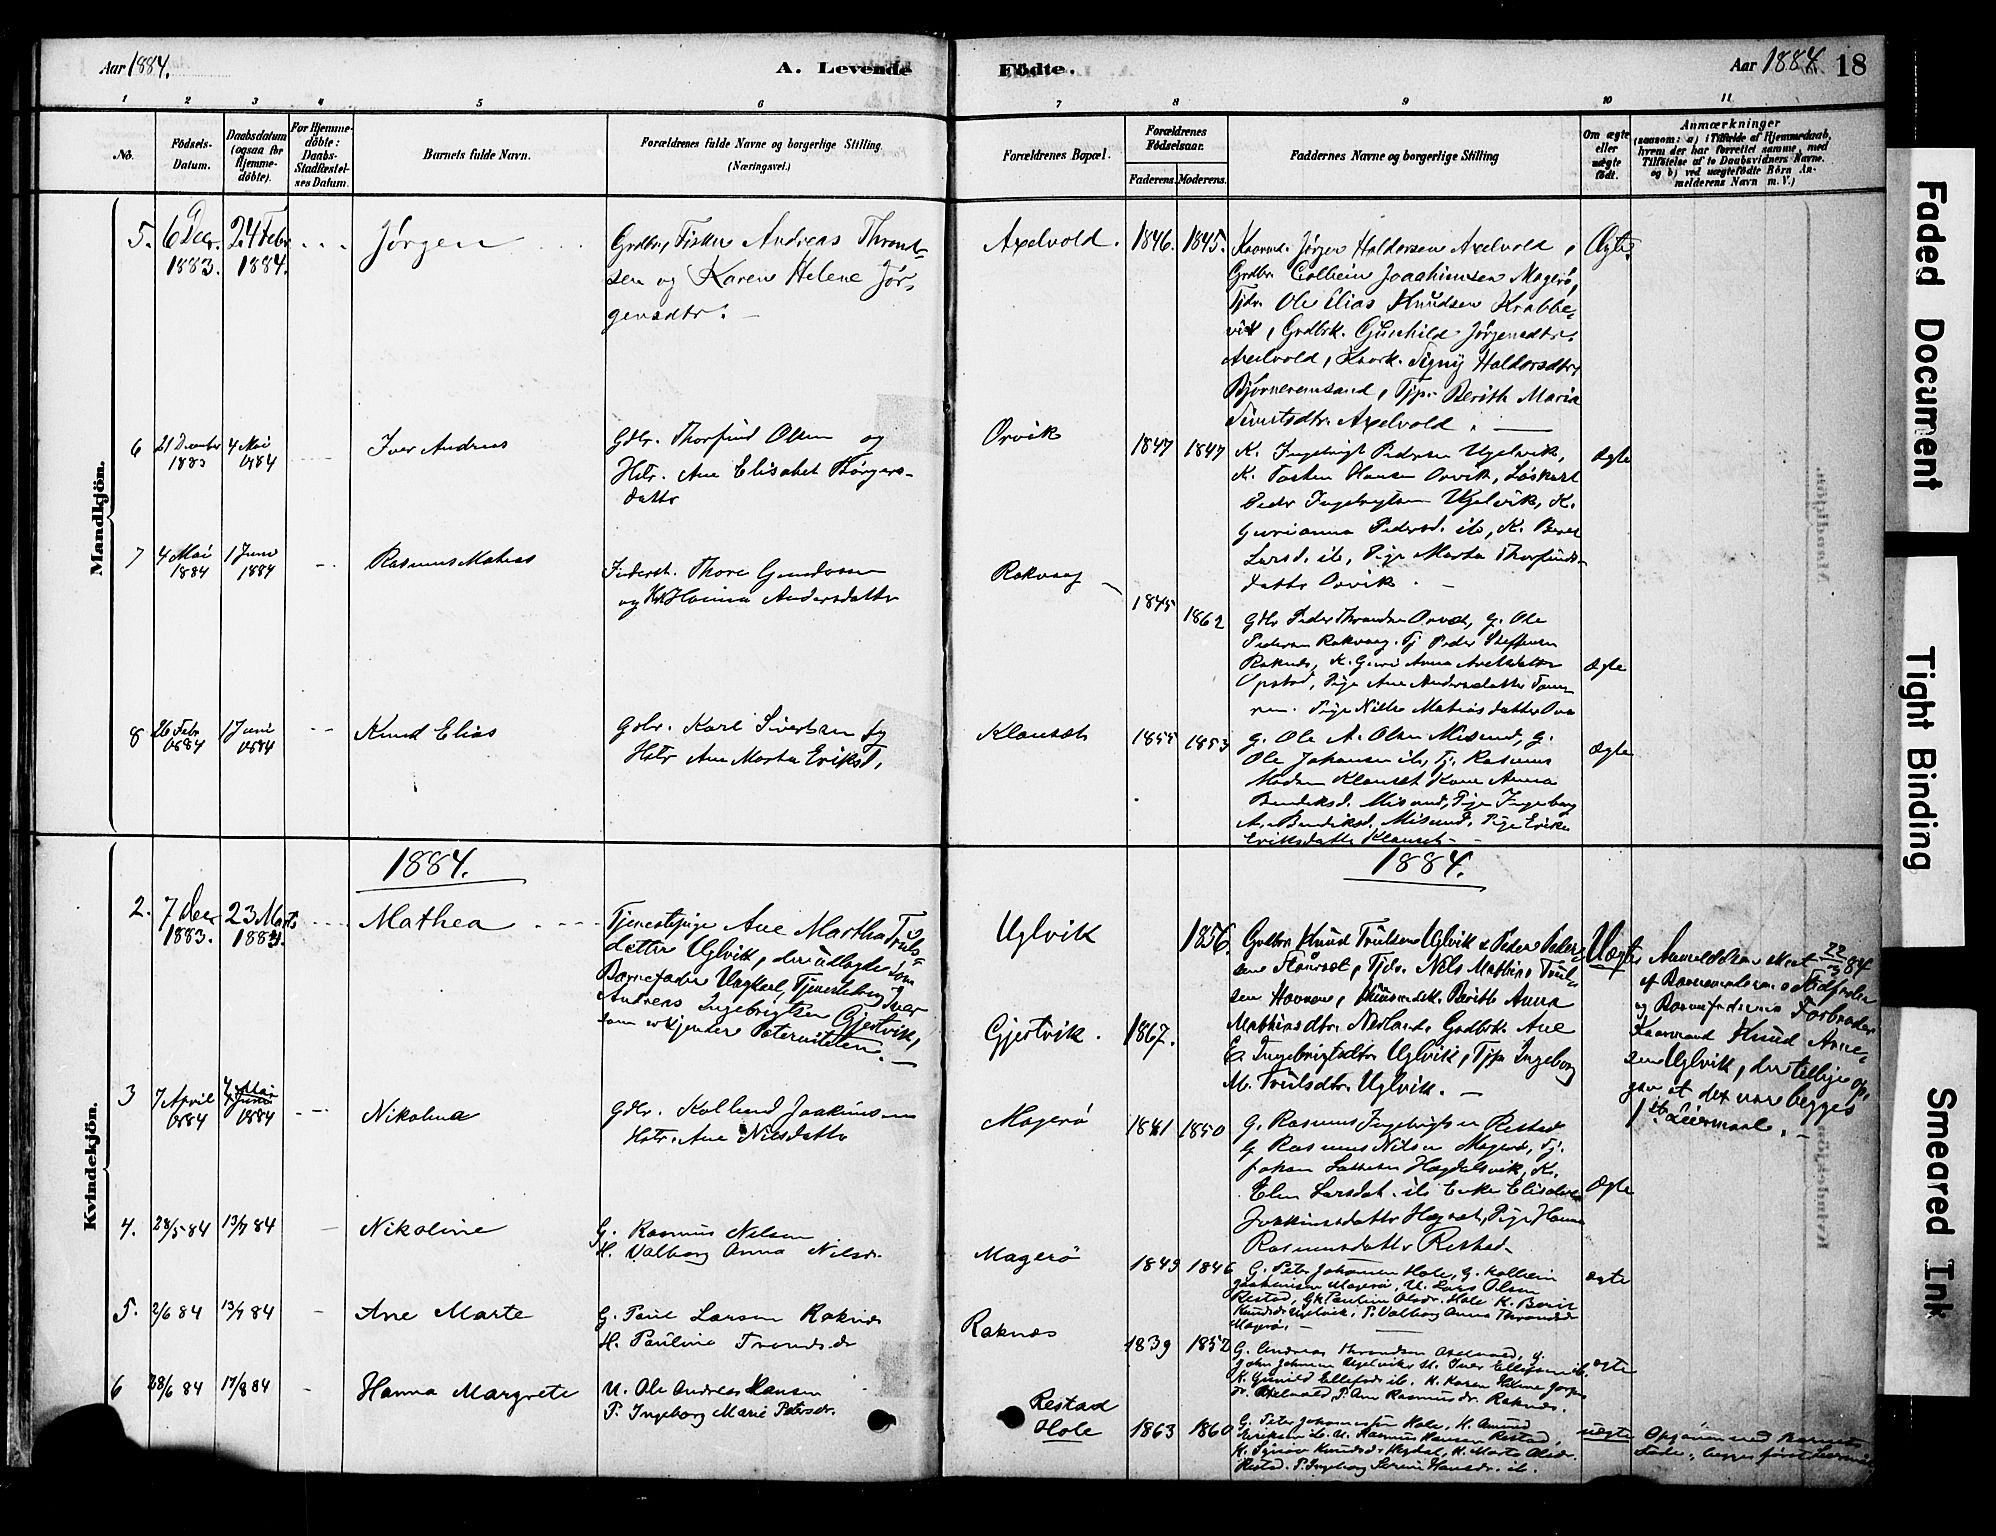 Aar 1884.
A. Levende
Födte.
Aar 1884
18
1 2 3 4 5 6 7 8 9 10 11
No.
Födsels-
Datum.
Daabsdatum
(ogsaa for
Hjemme-
döbte).
For Hjemme-
döbte:
Daabs-
Stadfæstel-
ses Datum.
Barnets fulde Navn.
Forældrenes fulde Navne og borgerlige Stilling
(Næringsvei.)
Forældrenes Bopæl.
Forældrenes
Födselsaar.
Faderens.
Moderens.
Faddernes Navne og borgerlige Stilling
Om ægte
eller
uægte
födt.
Anmærkninger
(saasom: a) i Tilfælde af Hjemmedaab,
hvem der har forrettet samme, med
Tilföielse af to Daabsvidners Navne.
og b) ved uægtefödte Börn An-
melderens Navn m. V.)
Mandkjön.
5.
6 Decr.
1883.
24 Febr
1884.
Jörgen
Grdbr, Fisker Andreas Thrond-
sen og Karen Helene Jör-
gensdtr.
Axelvold.
1846. 1845.
Kaarmd. Jörgen Haldorsen Axelvold,
Grdbr. Colbein Joachimsen Magerö,
Tjdr. Ole Elias Knudsen Krabbe-
vik, Grdbrk. Gunhild Jörgensdtr.
Axelvold, Kaark. Signy Haldorsdtr
Björneremsand, Tjp. Berith Maria
Sivertsdtr. Axelvold.
Ægte.
6
21 December
1883
4 Mai
1884
Iver Andreas
Gdbr. Thorfind Olsen og
Hstr. Ane Elisabet Börgers-
datter
Orvik
1847 1847
K. Ingebrigt Pedersen Ugelvik,
K. Hansen Orvik, Löskarl
Peder Ingebrigtsen Ugelvik, K.
Gurianna Pedersd. ib, K. Beret
Larsd. ib, Pige Marta Thorfinds-
datter Orvik.
ægte
7
4 Mai
1884
1 Juni
1884
Rasmus Matias
Thore
og Hanna Andersdatter
Rakvaag
1845
1862
Gdbr Peder
Pedersen Rakvaag. Tj Peder Steffensen
Raknes, K. Guri Anna
Opstad, Pige Ane Andersdatter
Pige Matiasdatter
ægte
8
26 Febr
1884
1 Juni
1884
Knud Elias
Gdbr. Karl Sivertsen og
Hstr Ane Marta Eriksd.
Klauset
1855 1853
G. Ole A. Olsen Misund, G.
Ole Johansen ib, Tj. Rasmus
Madsen Klauset Kone Anna
Bendiksd. Misund, Pige Ingeborg
A. Bendiksd. Misund, Pige
Eriksdatter Klauset
ægte
1884.
1884.
Kvindekjön.
2.
7 Decr
1883.
23 Marts
1884.
Mathea
Tjenestepige Ane Martha Truls-
datter Uglvik, der udlagde som
Barnefader Ungkarl, Tjenestedreng Iver
Andreas Ingebrigtsen Gjestvik,
som erkjender Paterniteten.
Uglvik
Gjestvik.
1856.
1867.
Gdbr Knud Trulsen Uglvik & Peder Peder-
sen, Tjdr. Nils Mathias Trul-
sen, Berith Anna
Mathiasdtr., Grdbrk. Ane
E. Ingebrigtsdtr Uglvik, Tjp Ingeborg
M. Trulsdtr. Uglvik.
Uægte
og Barnefaderens Farbroder
Kaarmand Knud Arne-
sen Uglvik, der tillige op-
gav at det var begges
1ste Leiermaal.
3
7 April
1884
4 Mai
1 Juni
1884
Nikolina
Gdbr. Kolbein Joakimsen
Hstr. Ane Nilsdatter
Magerö
1841 1850
G. Rasmus Ingebrigtsen Restad
G Rasmus Nilsen Magerö, Tj.
Johan, K.
Elen Larsdat. ib Enke
Joakimsdatter, Pige Hanna
Rasmusdatter Restad
Ægte
4.
28/5 84
13/7 84
Nikoline
G. Rasmus Nilsen
H. Valborg Anna Nilsdr.
Magerö
1849 1846
G. Peter Johansen Hole, G. Kolbein
Joakimsen Magerö, U. Lars Olsen
Restad, Gk Pauline Olsdr. Hole K. Berit
Knudsdr Ugelvik, P. Valborg Anna
Magerö.
ægte
5.
2/6 84
13/7 84
Ane Marte
G. Paul Larsen Raknes
H. Pauline Trondsdr
Raknes
1839 1852
G. Andreas Throndsen Axelvold, G.
John Johnsen Ugelvik, U. Iver Ellefsen ib.
K. Gunild Ellefsdr ib. K. Karen Helene Jorgs
dr. Axelvold, P. Ane Rasmusdr. Raknes.
ægte
6
28/6 84
17/8 84
Hanna Margrete
U. Ole Andreas Hansen
P. Ingeborg Marie Petersdr.
Restad
Hole
1863 1860
G. Peter Johannessen Hole, K. Amund
Eriksen ib. U. Rasmus Hansen Restad,
K. Synöv Knudsdr, K. Marta Olsdr.
Restad. P. Ingeborg Serine Hansdr. ib.
uægte
Faded Document
Tight Binding
Smeared Ink